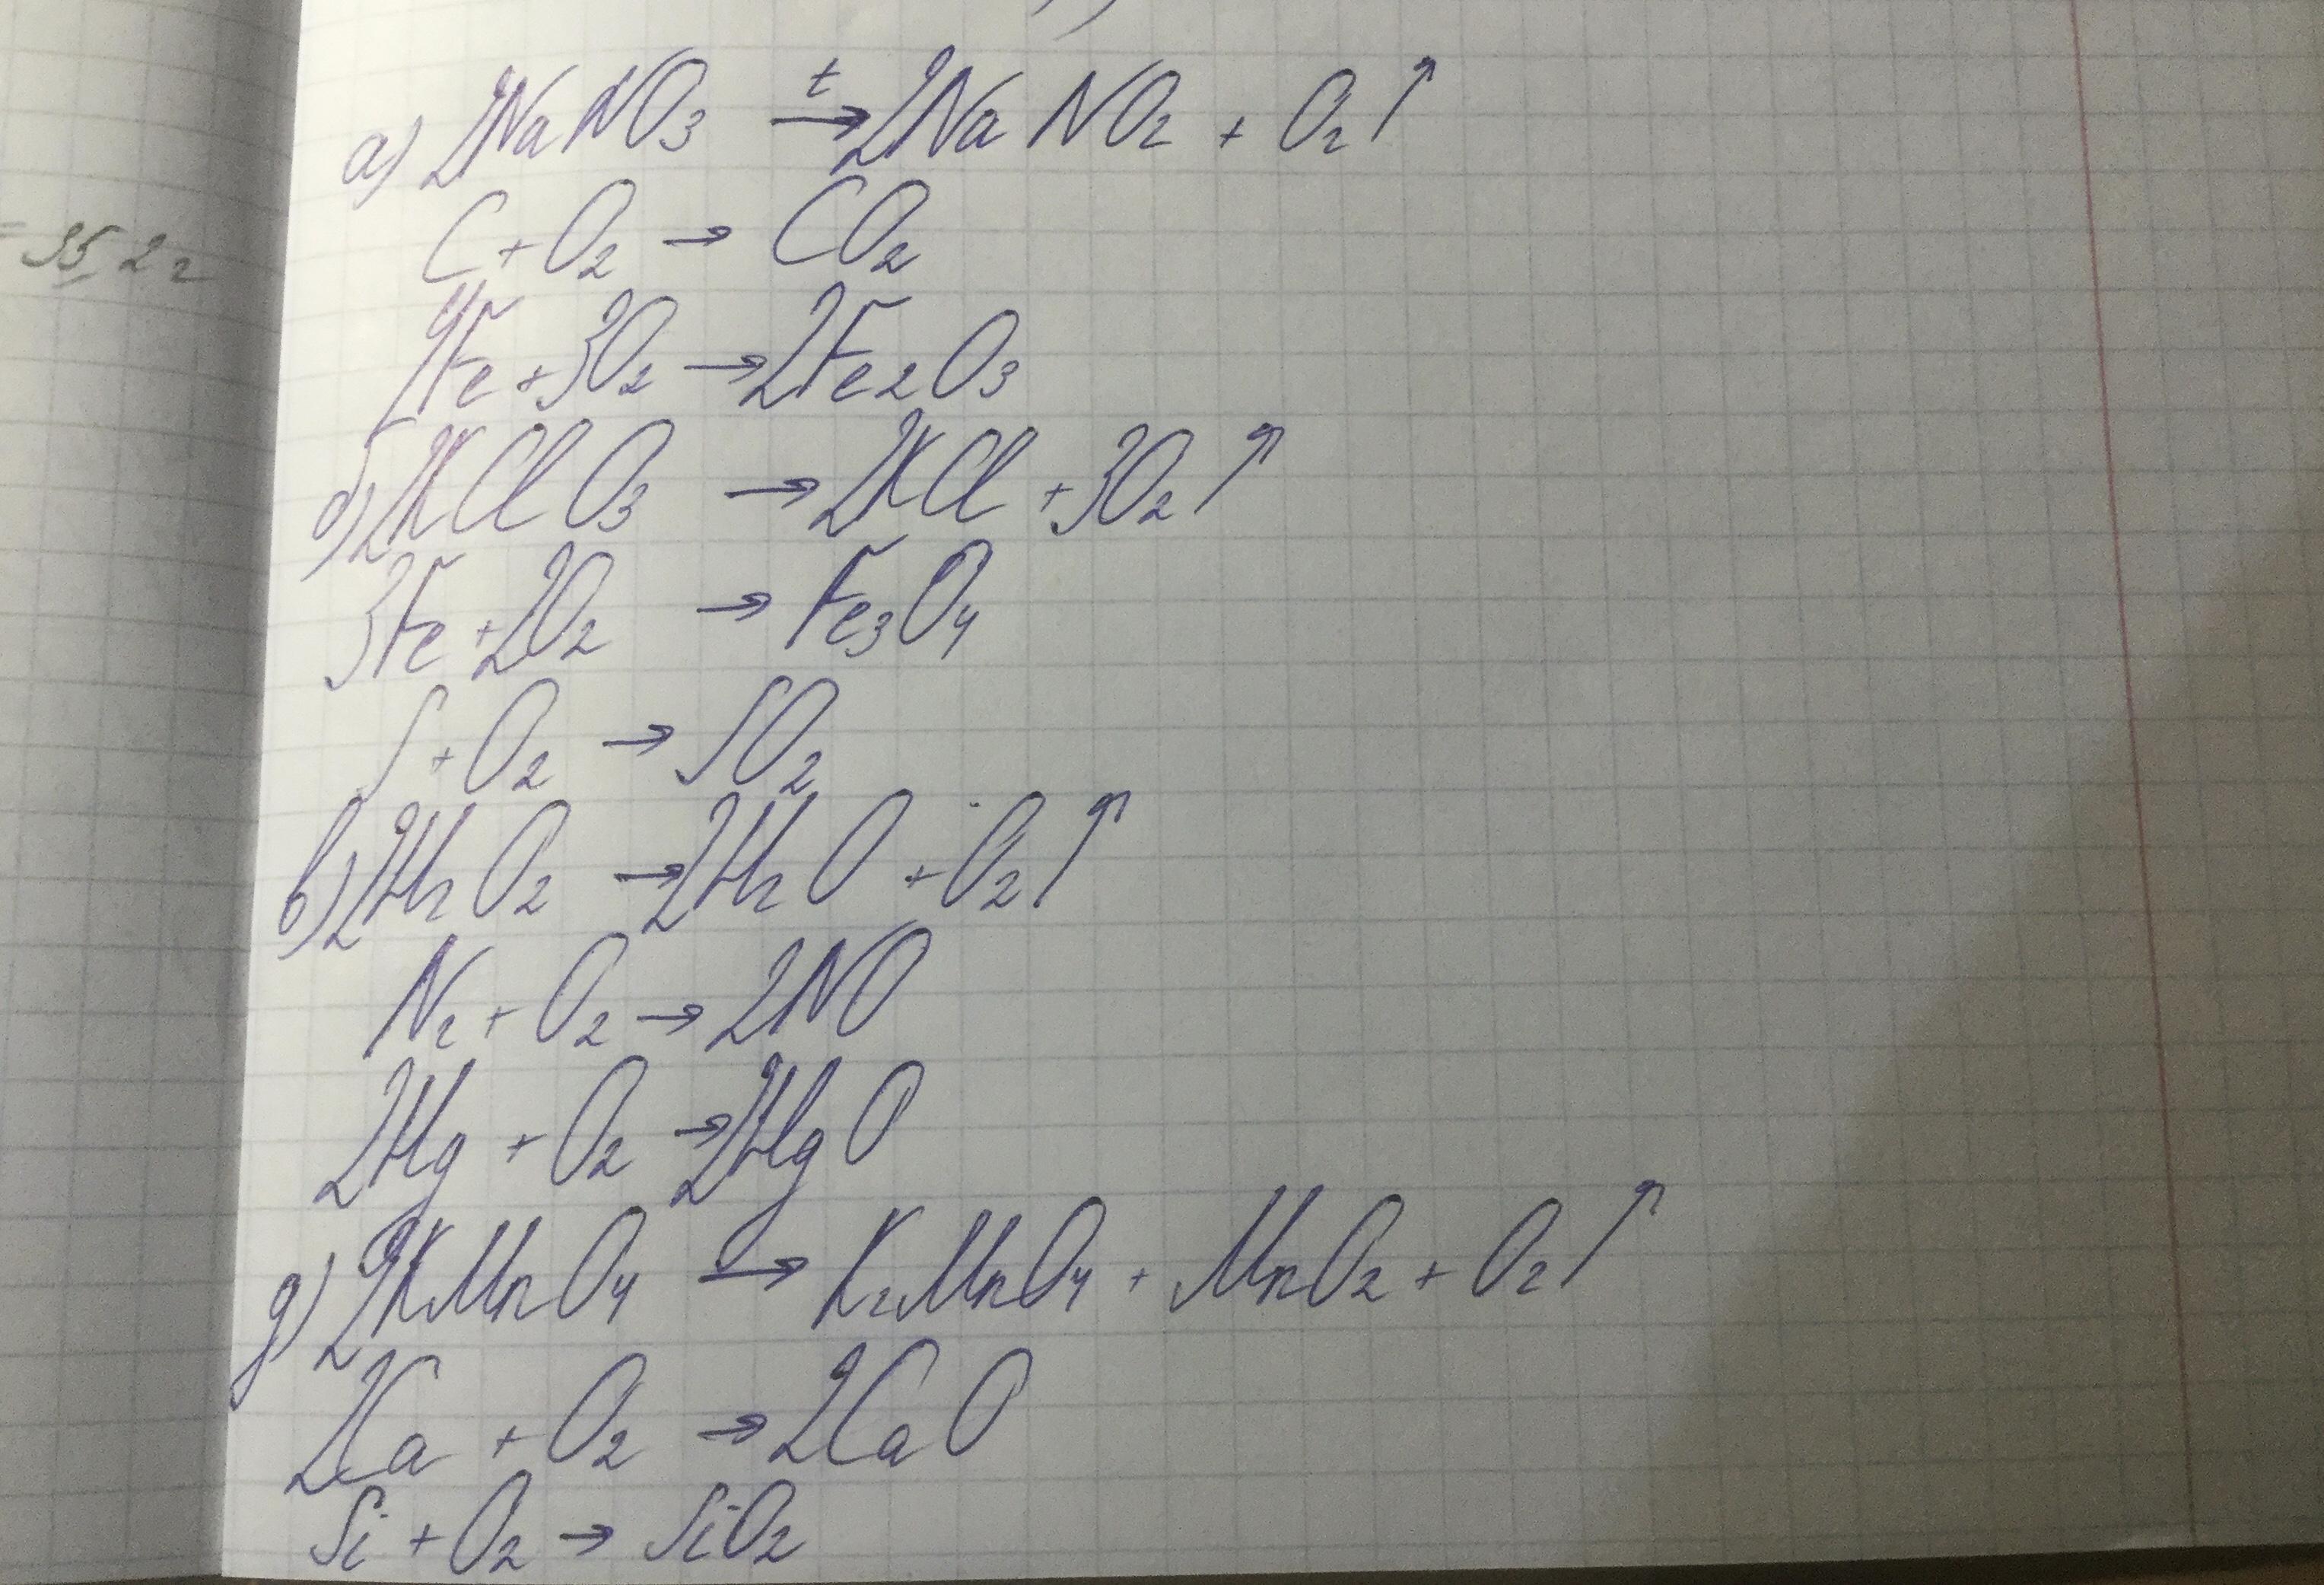 = 35,2 г
а) 2NaNO₃ →ᵗ 2NaNO₂ + O₂↑
C + O₂ → CO₂
4Fe + 3O₂ → 2Fe₂O₃
б) 2KClO₃ → 2KCl + 3O₂↑
3Fe + 2O₂ → Fe₃O₄
S + O₂ → SO₂
в) 2H₂O₂ → 2H₂O + O₂↑
N₂ + O₂ → 2NO
2Hg + O₂ → 2HgO
g) 2KMnO₄ → K₂MnO₄ + MnO₂ + O₂↑
2Ca + O₂ → 2CaO
Si + O₂ → SiO₂